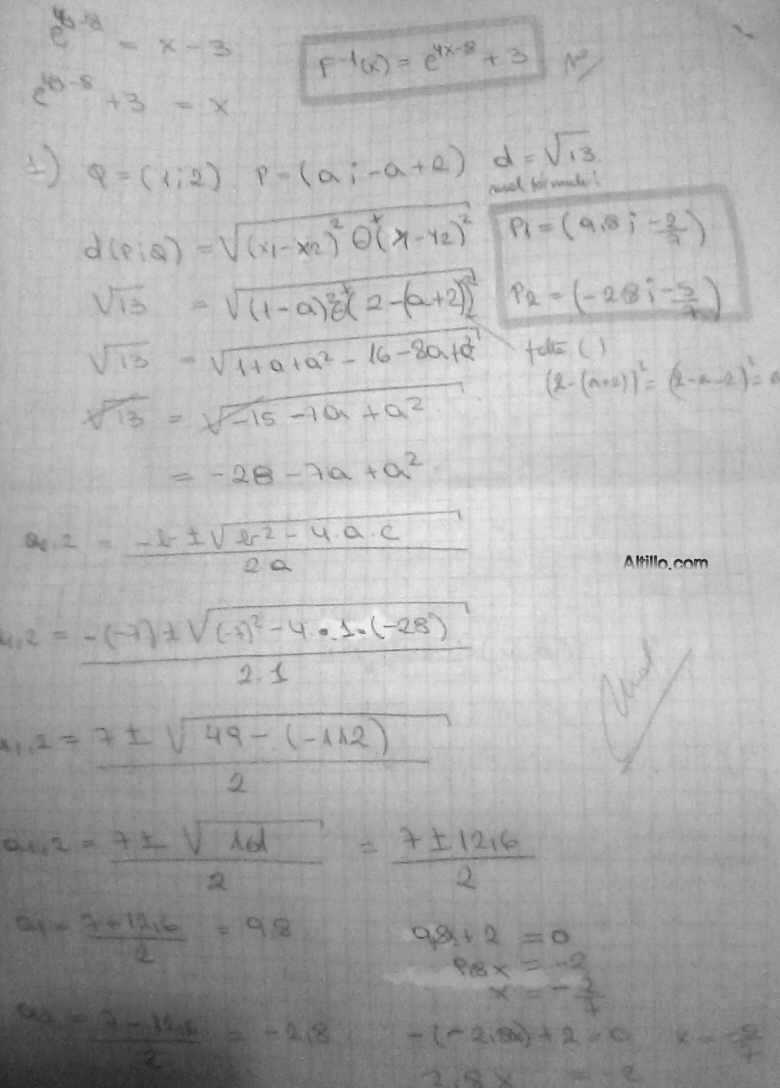 e^(4y-8) = x - 3
F⁻¹(x) = e^(4x-8) + 3
e^(4y-8) + 3 = x
1) Q = (1;2) P = (a; -a+2) d = √13
mal formula!
d(P;Q) = √((x1-x2)² + (x-y2)²)
P1 = (9,8; -2/7)
√13 = √((1-a)² + (2-(a+2))²)
P2 = (-2,8; -5/7)
√13 = √(1+a+a² - 16-8a+a²)
falta ( )
(2-(a+2))² = (2-a-2)² =
√13 = √(-15-7a+a²)
= -28-7a+a²
a1,2 = (-b ± √(b²-4.a.c)) / 2a
Altillo.com
1,2 = (-(-7) ± √((-7)²-4.1.(-28))) / 2.1
mal
1,2 = (7 ± √(49-(-112))) / 2
a1,2 = (7 ± √161) / 2 = (7 ± 12,6) / 2
a1 = (7+12,6) / 2 = 9,8
9,8 + 2 = 0
9,8x = -2
x = -2/7
a2 = (7-12,6) / 2 = -2,8
-(-2,8x) + 2 = 0
2,8x = -2